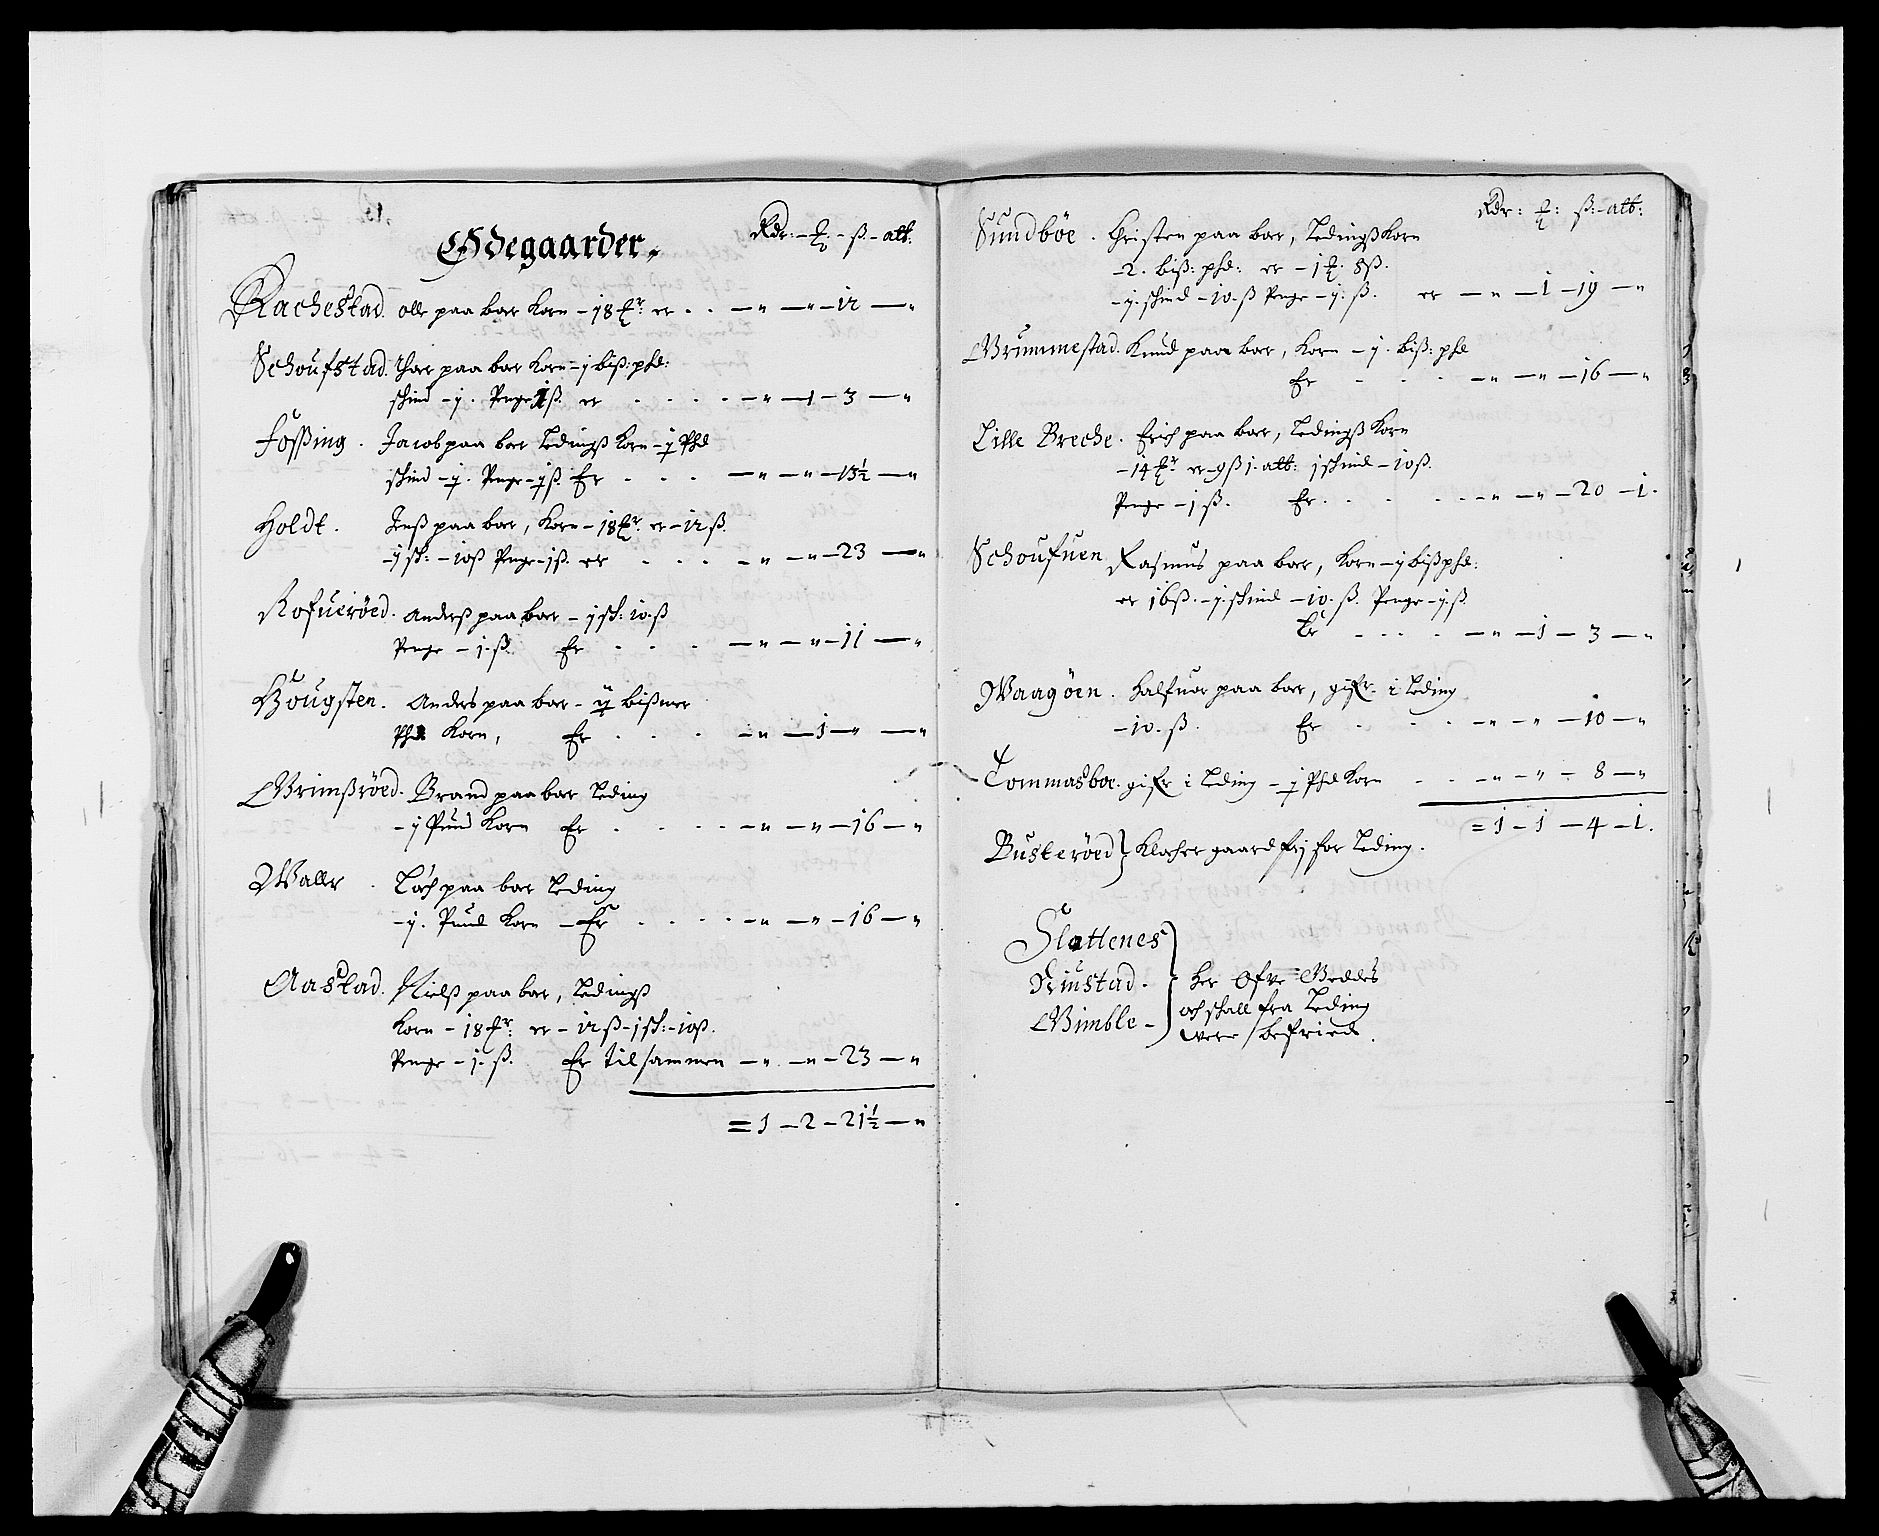 Ødegaarder.
Rdr: - ʒ: - ß - alb:
Rachestad. olle paa boer Korn - 18 ʒr. er . . - " - " - 12 - "
Schoufstad. Thor paa boer Korn - j biß: phd:
schind - j. Penge 1 ß. er . . . . - " - 1 - 3 - "
Fossing. Jacob paa boer Ledingß Korn - j Phd
schind - j. Penge - j ß. Er . . . - " - " - 13½ - "
Holdt. Jenß paa boer, Korn - 18 ʒr. er - 12 ß.
- j sk: - 10 ß Penge - j ß. er . . . . - " - " - 23 - "
Rofueröed. Anderß paa boer - j sk: 10. ß
Penge - 1. ß. Er . . . - " - " - 11 - "
Hougsten. Anders paa boer - ij bißmer
Phd Korn, Er . . . - " - 1 - " - "
Grimßröed. Brand paa boer Leding
- j Pund Korn Er . . . . - " - " - 16 - "
Waller. Loch paa boer Leding
- j. Pund Korn - Er . . . . - " - " - 16 - "
Aastad. Nielß paa boer, Ledingß
Korn - 18 ʒr. er - 12 ß - j sk: - 10 ß.
Penge - 1. ß. Er tilsammen - " - " - 23 - "
= 1 - 2 - 21½ - "
Rdr: ʒ: ß: - alb:
Sundböe. Christen paa boer, Ledingß Korn
- 2. biß: phd: er - 1 ʒ. 8 ß.
- j. schind - 10. ß Penge - j. ß. er - " - 1 - 19 - "
Grummestad. Knud paa boer, Korn - j. biß: phd
Er . . . - " - " - 16 - "
Lille Breche. Erich paa boer, Ledingß Korn
- 14 ʒr. er - 9 ß j. alb: j schind - 10 ß.
Penge - j ß. Er . . . . . - " - " - 20 - 1.
Schoufuen Rasmus paa boer, Korn - j biß phd:
er 16 ß. - j. schind - 10. ß. Penge - j. ß.
Er . . . . - " - 1 - 3 - "
Waagöen. Halfuor paa boer, gifr. i Leding
- 10. ß. Er . . . - " - " - 10 - "
Tommasboe. gifr i Leding - j Phd Korn . . - " - " - 8 - "
= 1 - 1 - 4 - 1.
Busteröed } Klocher gaard frj for Leding.
Slattenes
Riustad.
Gimble -
her öfue Boddes
och schall fra Leding
were befried.